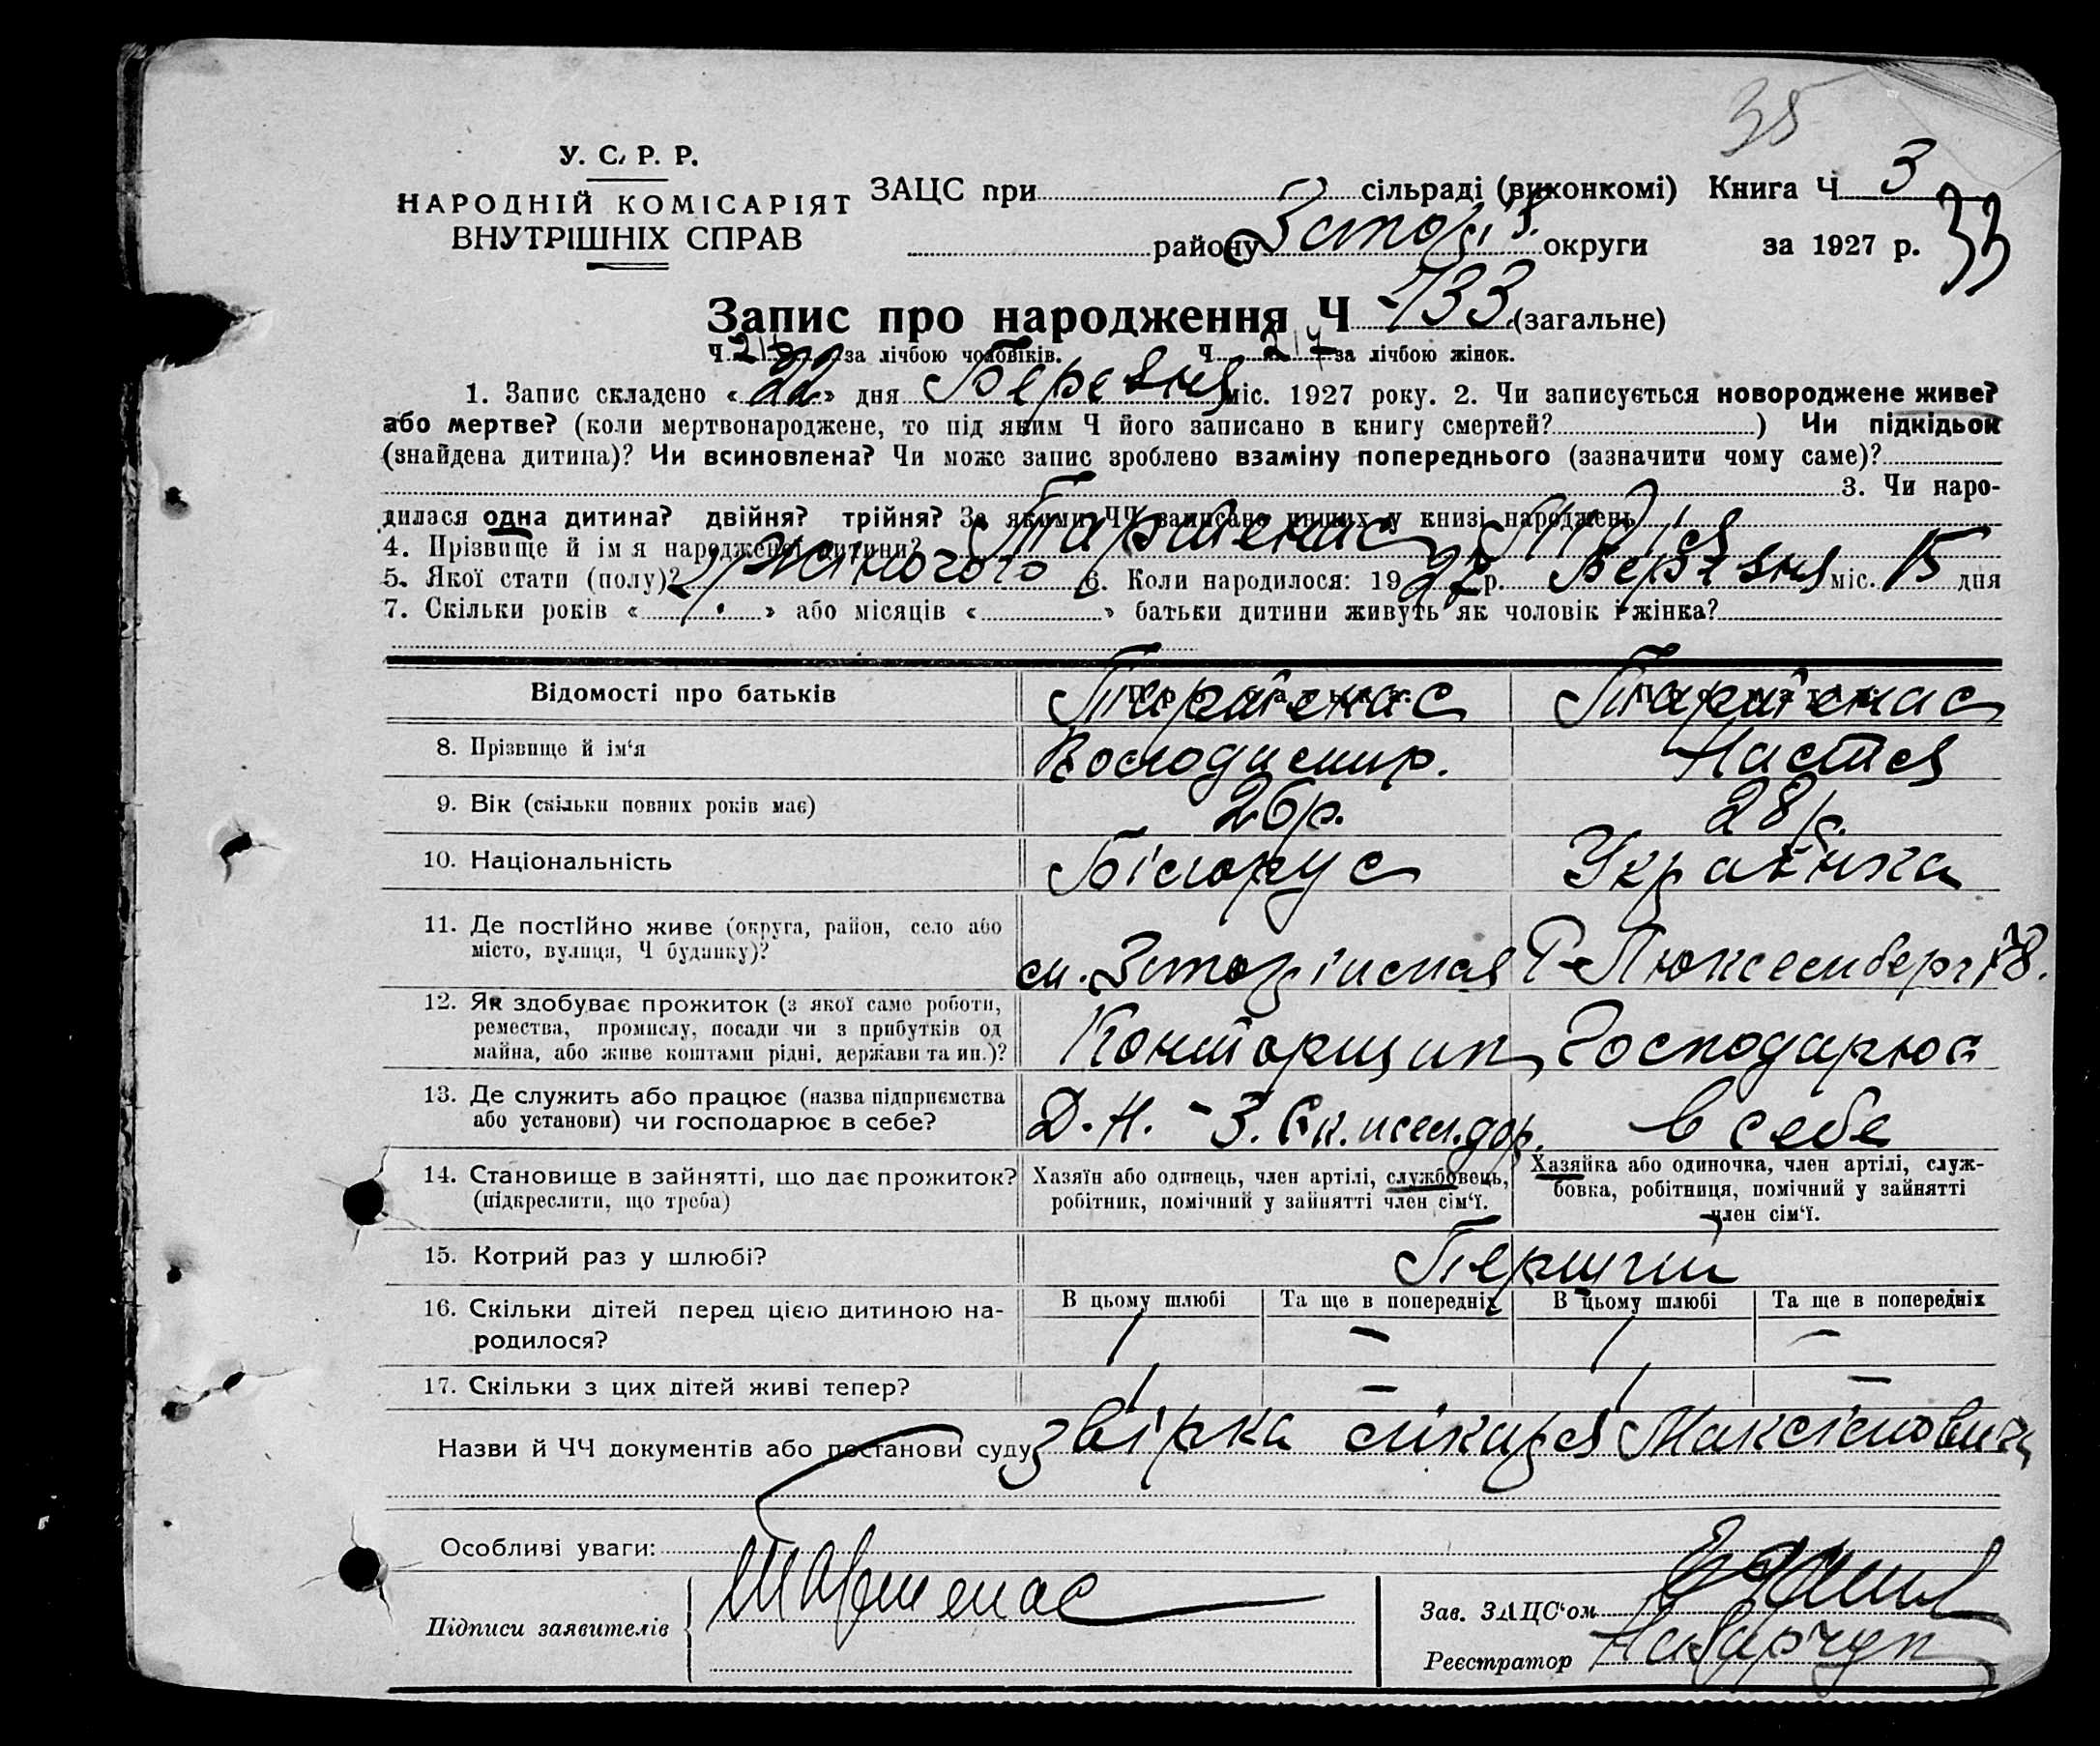 35
У. С. Р. Р.
НАРОДНІЙ КОМІСАРІЯТ
ВНУТРІШНІХ СПРАВ
ЗАЦС при сільраді (виконкомі) Книга Ч 3
району округи за 1927 р. 33
Запис про народження Ч 433 (загальне)
Ч за лічбою чоловіків. Ч 217 за лічбою жінок.
1. Запис складено «22» дня Березня міс. 1927 року. 2. Чи записується новороджене живе?
або мертве? (коли мертвонароджене, то під яким Ч його записано в книгу смертей? ) Чи підкідьок
(знайдена дитина)? Чи всиновлена? Чи може запис зроблено взаміну попереднього (зазначити чому саме)?
3. Чи наро-
дилася одна дитина? двійня? трійня? За якими ЧЧ записано инших у книзі народжень
4. Прізвище й ім я народженої дитини? Лідія
5. Якої стати (полу)? жіночого 6. Коли народилося: 1927 р. Березня міс. 15 дня
7. Скільки років « » або місяців « » батьки дитини живуть як чоловік і жінка?
Відомості про батьків
8. Прізвище й ім'я Володимир. Настя
9. Вік (скільки повних років має) 26 р. 28 р.
10. Національність Білорус Українка
11. Де постійно живе (округа, район, село або
місто, вулиця, Ч будинку)? Р-Люксембург 78.
12. Як здобуває прожиток (з якої саме роботи,
ремества, промислу, посади чи з прибутків од
майна, або живе коштами рідні, держави та ин.)? Конторщик Господарює
13. Де служить або працює (назва підприємства
або установи) чи господарює в себе? Д.Н.-З. в себе
14. Становище в зайнятті, що дає прожиток?
(підкреслити, що треба)
Хазяїн або одинець, член артілі, службовець,
робітник, помічний у зайнятті член сім'ї.
Хазяйка або одиночка, член артілі, служ-
бовка, робітниця, помічний у зайнятті
член сім'ї.
15. Котрий раз у шлюбі? Перший
16. Скільки дітей перед цією дитиною на-
родилося?
В цьому шлюбі Та ще в попередніх В цьому шлюбі Та ще в попередніх
1 — 1 —
17. Скільки з цих дітей живі тепер? 1 — 1 —
Назви й ЧЧ документів або постанови суду звірка лікаря Максімович
Особливі уваги:
Підписи заявителів
Зав. ЗАЦС'ом
Реєстратор